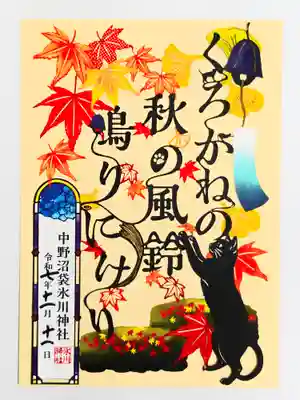 くろがねの
秋の風鈴
鳴りにけり
中野沼袋氷川神社
令和七年十一月十一日